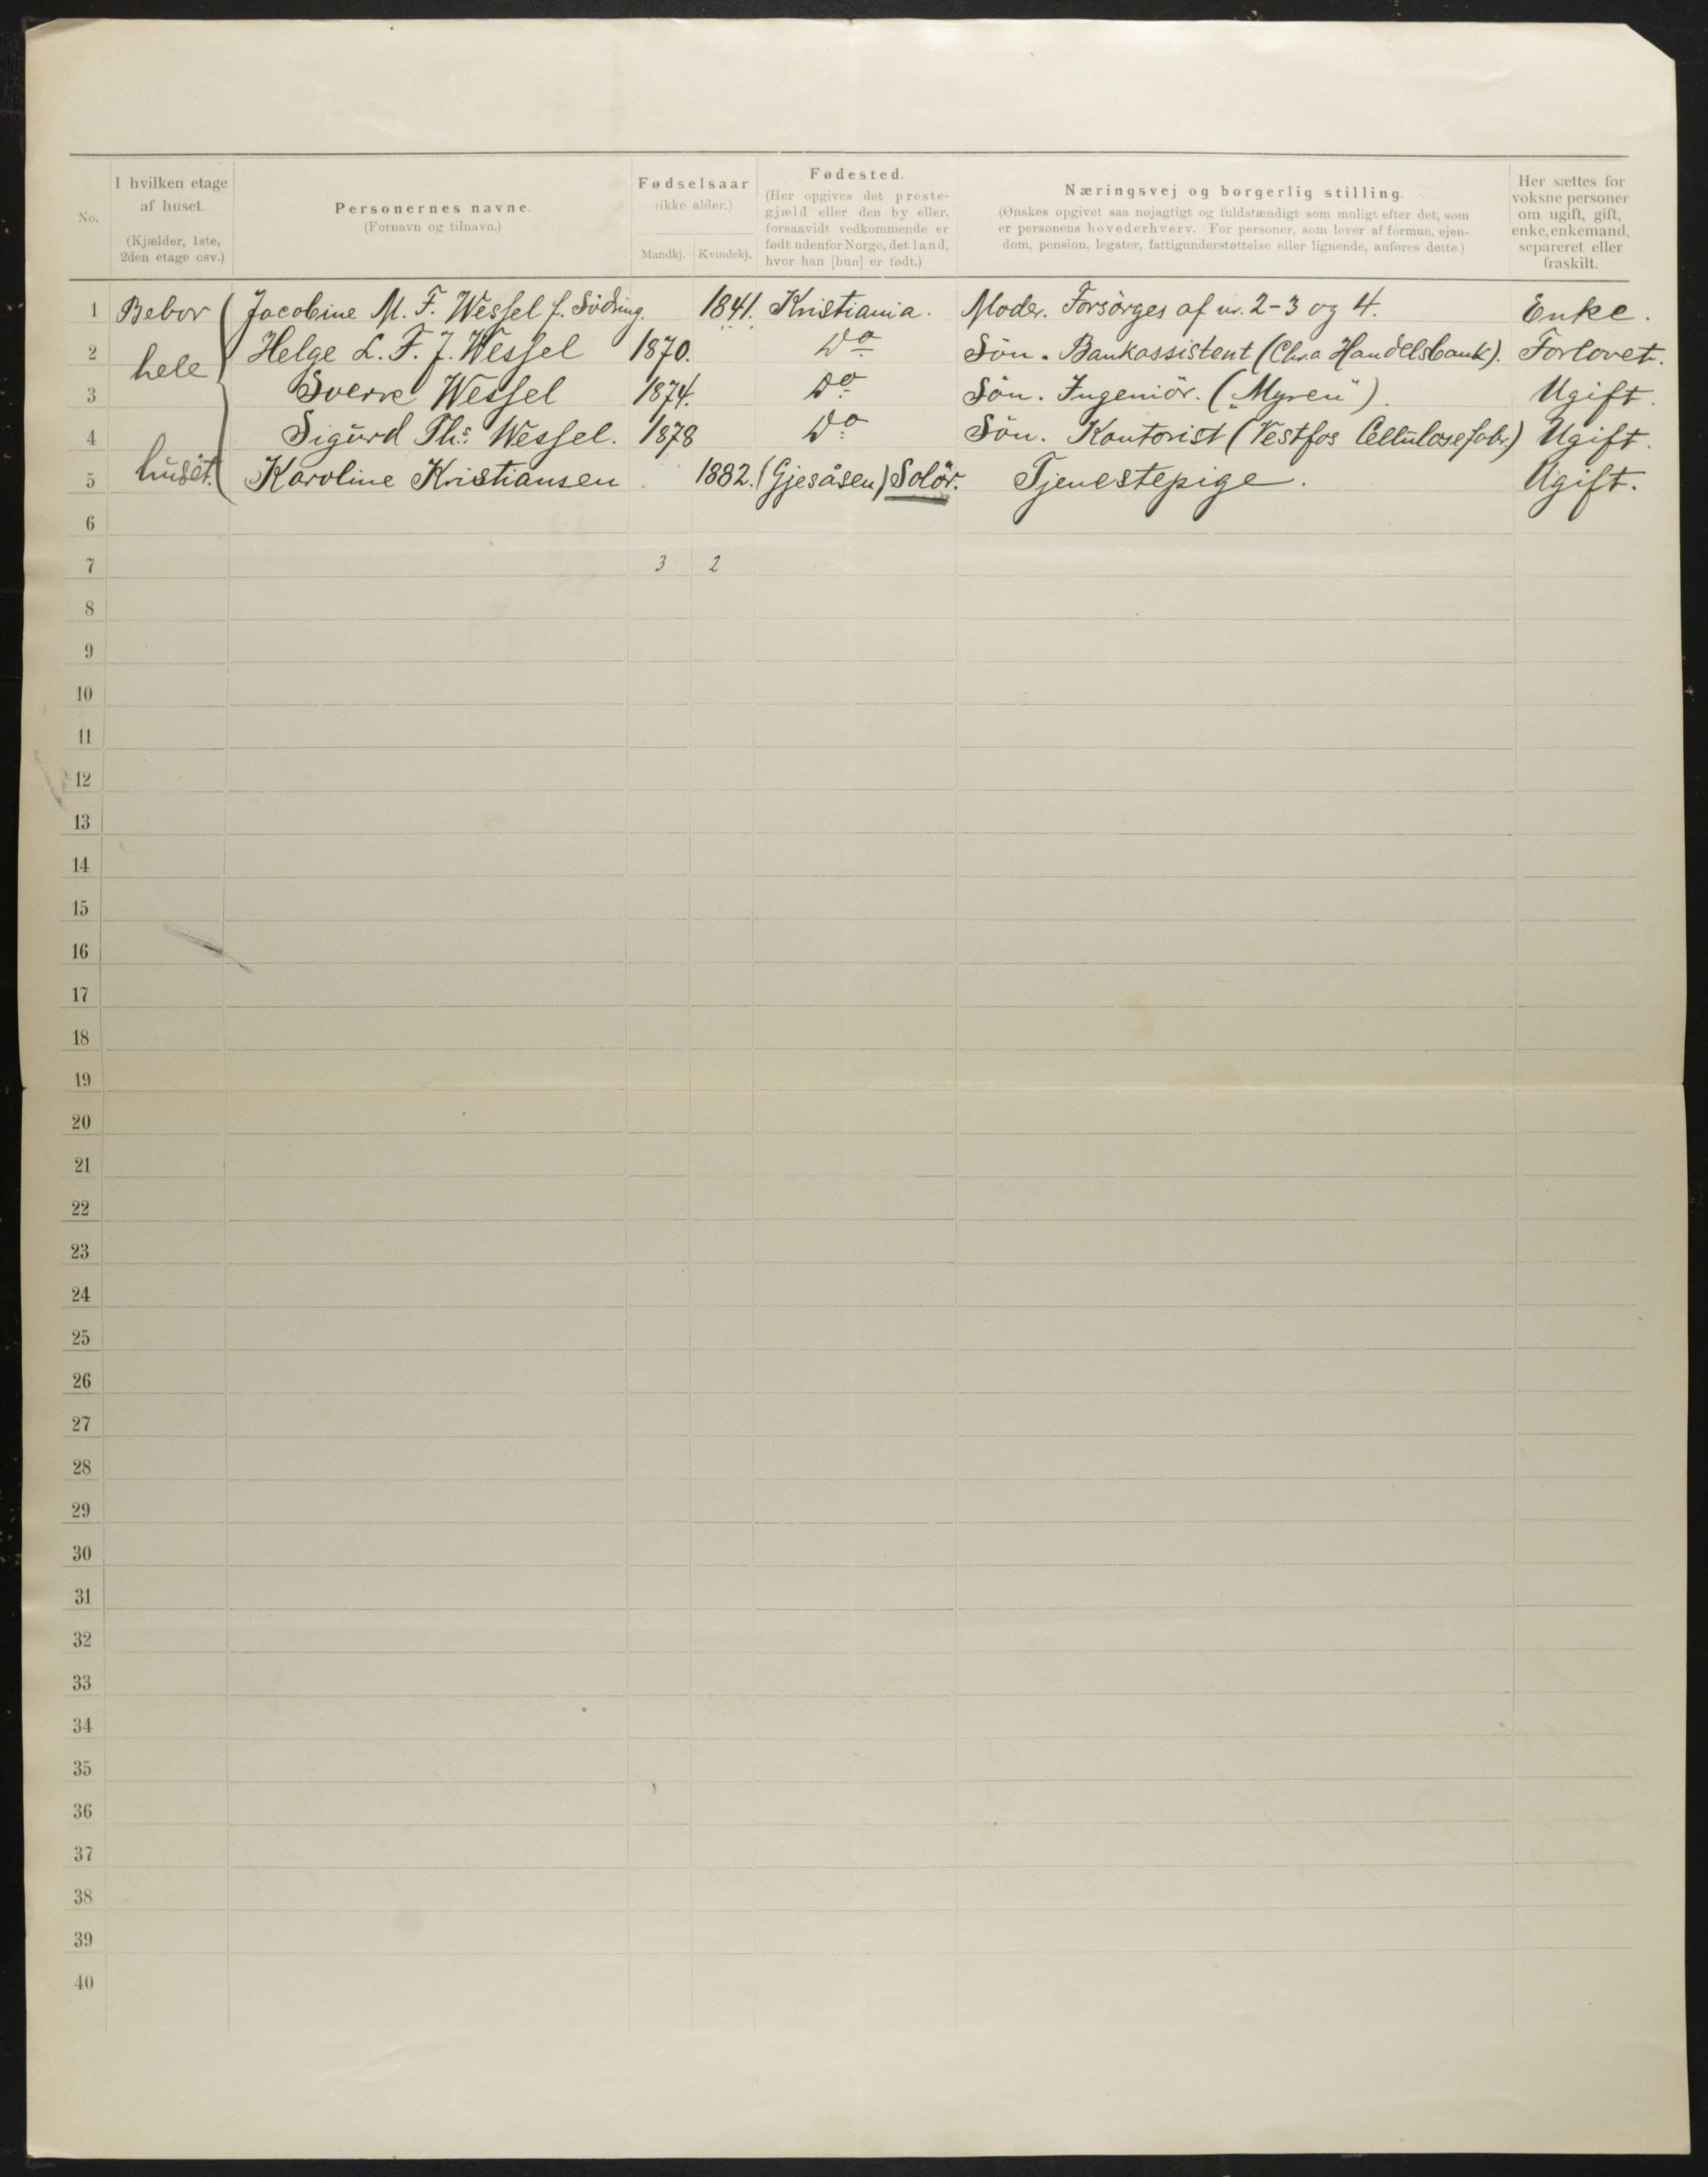 No.
I hvilken etage af huset. (Kjælder, 1ste, 2den etage osv.)
Personernes navne. (Fornavn og tilnavn.)
Fødselsaar (ikke alder.)
Mandkj. Kvindekj.
Fødested. (Her opgives det prestegjæld eller den by eller, forsaavidt vedkommende er født udenfor Norge, det land, hvor han [hun] er født.)
Næringsvej og borgerlig stilling. (Ønskes opgivet saa nøjagtigt og fuldstændigt som muligt efter det, som er personens hovederhverv. For personer, som lever af formue, ejendom, pension, legater, fattigunderstøttelse eller lignende, anføres dette.)
Her sættes for voksne personer om ugift, gift, enke, enkemand, separeret eller fraskilt.
1 Bebor Jacobine M. F. Wessel f. Söding. 1841. Kristiania. Moder. Forsörges af nr. 2-3 og 4. Enke.
2 hele Helge L. F. J. Wessel 1870. Do Sön. Bankassistent (Chr.a Handelsbank). Forlovet.
3 Sverre Wessel 1874. Do Sön. Ingeniör. („Myren“). Ugift.
4 Sigurd Ths. Wessel. 1878 Do Sön. Kontorist (Vestfos Cellulosefabr.) Ugift.
5 huset. Karoline Kristiansen 1882. (Gjesåsen) Solör. Tjenestepige. Ugift.
6
7 3 2
8
9
10
11
12
13
14
15
16
17
18
19
20
21
22
23
24
25
26
27
28
29
30
31
32
33
34
35
36
37
38
39
40